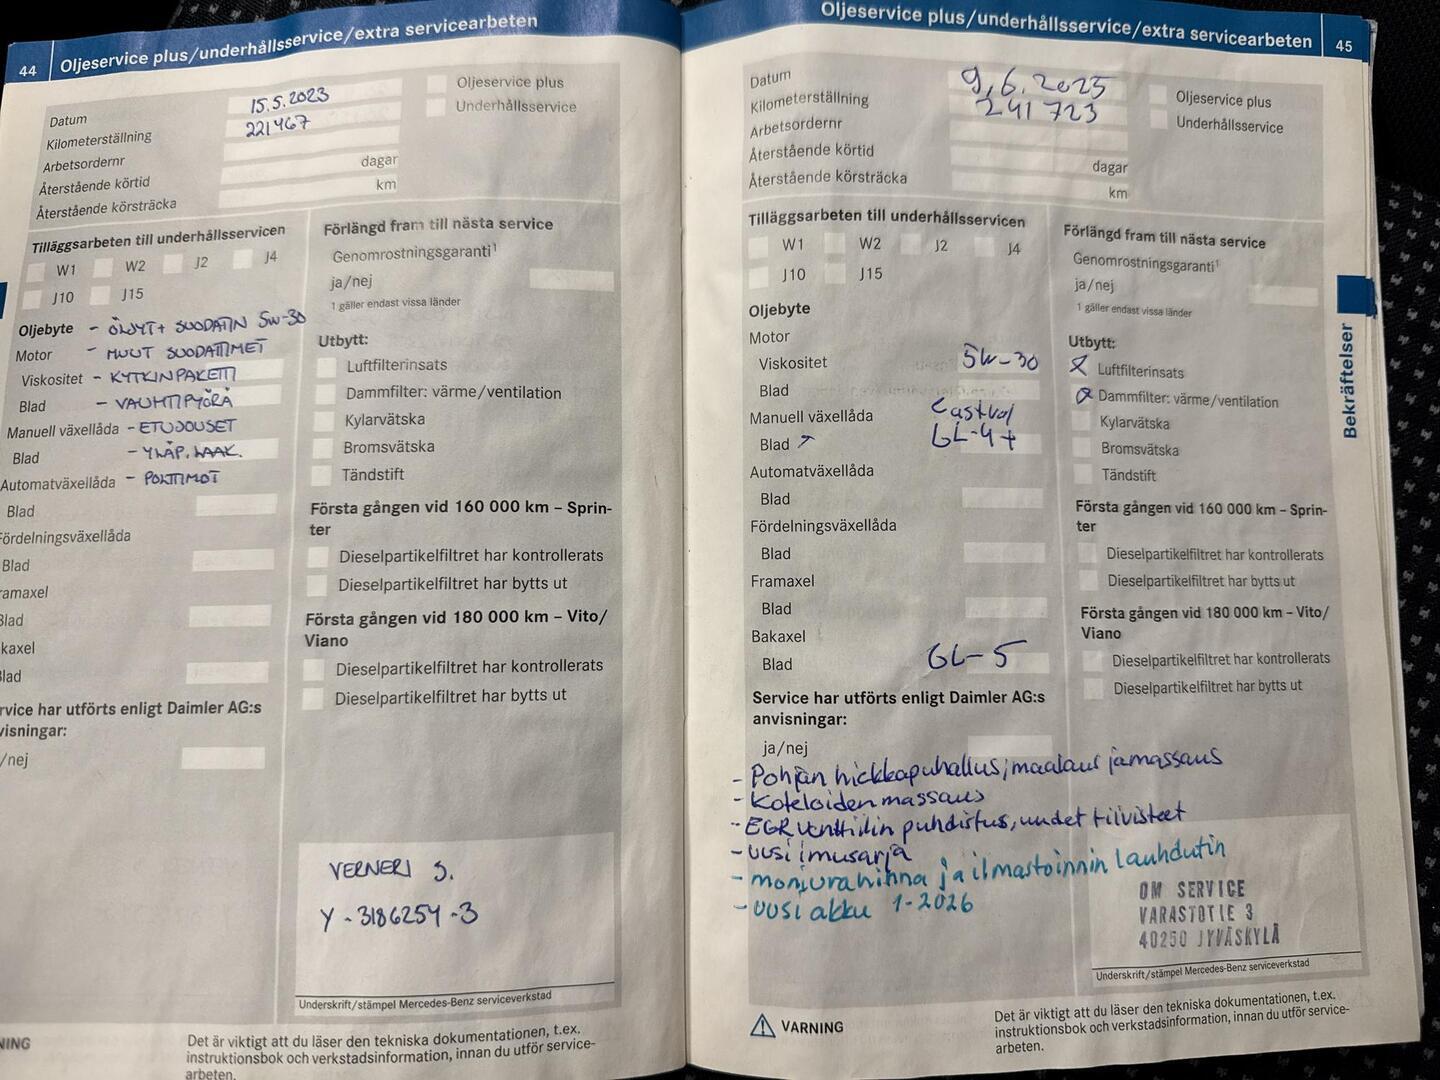 44 Oljeservice plus/underhållsservice/extra servicearbeten
Datum 15.5.2023
Kilometerställning 221467
Arbetsordernr
Återstående körtid dagar
Återstående körsträcka km
Oljeservice plus
Underhållsservice
Tilläggsarbeten till underhållsservicen
W1 W2 J2 J4
J10 J15
Oljebyte - ÖLJYT+ SUODATIN 5W-30
Motor - MUUT SUODATTIMET
Viskositet - KYTKINPAKETTI
Blad - VAUHTIPYÖRÄ
Manuell växellåda - ETUJOUSET
Blad - YLÄP. LAAK.
Automatväxellåda - POLTTIMOT
Blad
Fördelningsväxellåda
Blad
ramaxel
Blad
kaxel
Blad
rvice har utförts enligt Daimler AG:s
visningar:
/nej
Förlängd fram till nästa service
Genomrostningsgaranti¹
ja/nej
1 gäller endast vissa länder
Utbytt:
Luftfilterinsats
Dammfilter: värme/ventilation
Kylarvätska
Bromsvätska
Tändstift
Första gången vid 160 000 km – Sprin-
ter
Dieselpartikelfiltret har kontrollerats
Dieselpartikelfiltret har bytts ut
Första gången vid 180 000 km – Vito/
Viano
Dieselpartikelfiltret har kontrollerats
Dieselpartikelfiltret har bytts ut
VERNERI S.
Y-3186254-3
Underskrift/stämpel Mercedes-Benz serviceverkstad
NING
Det är viktigt att du läser den tekniska dokumentationen, t.ex.
instruktionsbok och verkstadsinformation, innan du utför service-
arbeten.
Oljeservice plus/underhållsservice/extra servicearbeten 45
Datum 9,6.2025
Kilometerställning 241723
Arbetsordernr
Återstående körtid dagar
Återstående körsträcka km
Oljeservice plus
Underhållsservice
Tilläggsarbeten till underhållsservicen
W1 W2 J2 J4
J10 J15
Oljebyte
Motor
Viskositet 5W-30
Blad
Manuell växellåda Castrol
Blad GL-4+
Automatväxellåda
Blad
Fördelningsväxellåda
Blad
Framaxel
Blad
Bakaxel
Blad GL-5
Service har utförts enligt Daimler AG:s
anvisningar:
ja/nej
Förlängd fram till nästa service
Genomrostningsgaranti¹
ja/nej
1 gäller endast vissa länder
Utbytt:
Luftfilterinsats
Dammfilter: värme/ventilation
Kylarvätska
Bromsvätska
Tändstift
Första gången vid 160 000 km – Sprin-
ter
Dieselpartikelfiltret har kontrollerats
Dieselpartikelfiltret har bytts ut
Första gången vid 180 000 km – Vito/
Viano
Dieselpartikelfiltret har kontrollerats
Dieselpartikelfiltret har bytts ut
Bekräftelser
- Pohjan hiekkapuhallus, maalaus ja massaus
- Koteloiden massaus
- EGR venttiilin puhdistus, uudet tiivisteet
- uusi imusarja
- moniurahihna ja ilmastoinnin lauhdutin
- uusi akku 1-2026
OM SERVICE
VARASTOTIE 3
40250 JYVÄSKYLÄ
Underskrift/stämpel Mercedes-Benz serviceverkstad
VARNING
Det är viktigt att du läser den tekniska dokumentationen, t.ex.
instruktionsbok och verkstadsinformation, innan du utför service-
arbeten.